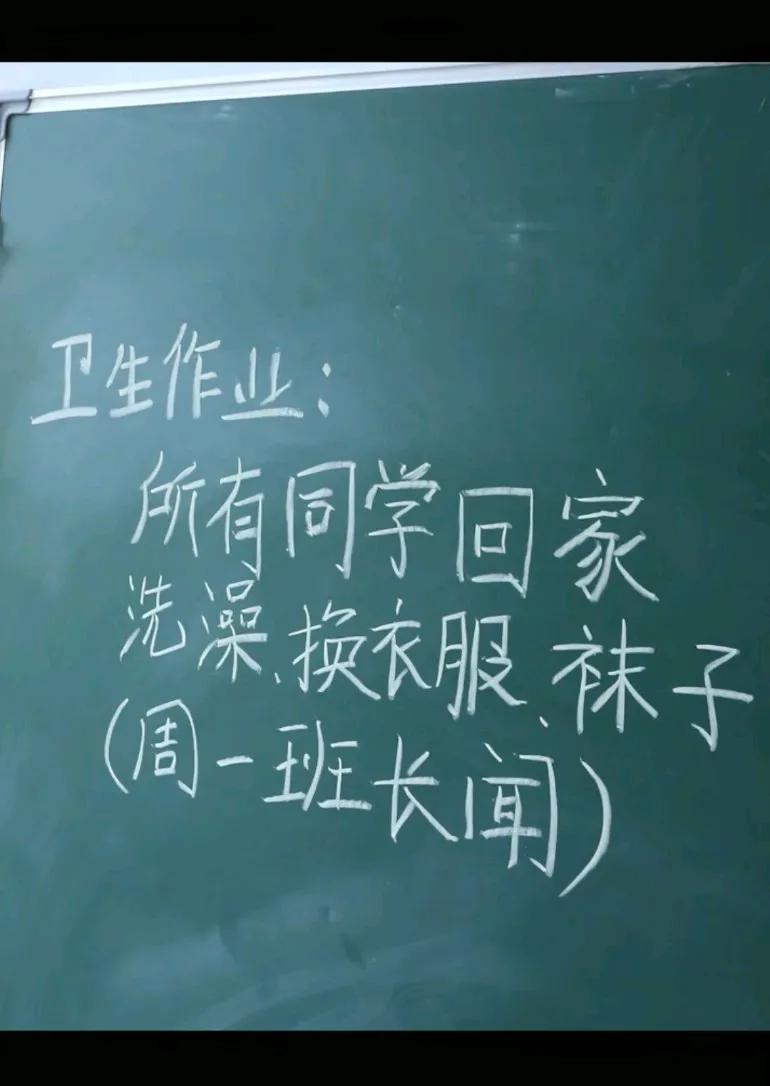 卫生作业：
所有同学回家
洗澡、换衣服、袜子
(周一班长闻)